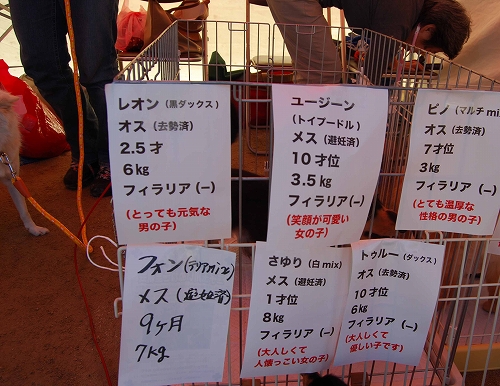 レオン（黒ダックス）
オス（去勢済）
2.5才
6kg
フィラリア（－）
（とっても元気な
男の子）
ユージーン
（トイプードル）
メス（避妊済）
10才位
3.5kg
フィラリア（－）
（笑顔が可愛い
女の子）
ピノ（マルチmix
オス（去勢済）
7才位
3kg
フィラリア（－）
（とても温厚な
性格の男の子）
フォン
メス（避妊済）
9ヶ月
7kg
さゆり（白mix）
メス（避妊済）
1才位
8kg
フィラリア（－）
（大人しくて
人懐っこい女の子）
トゥルー（ダックス）
オス（去勢済）
10才位
6kg
フィラリア（－）
（大人しくて
優しい子です）